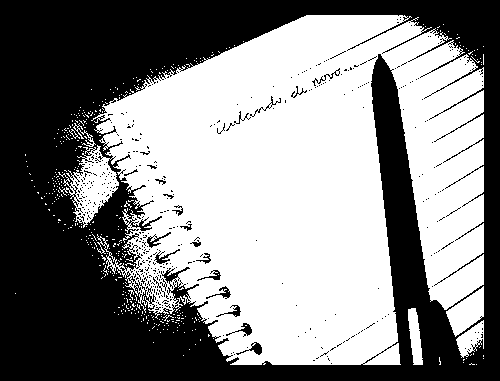 Tentando, de novo...